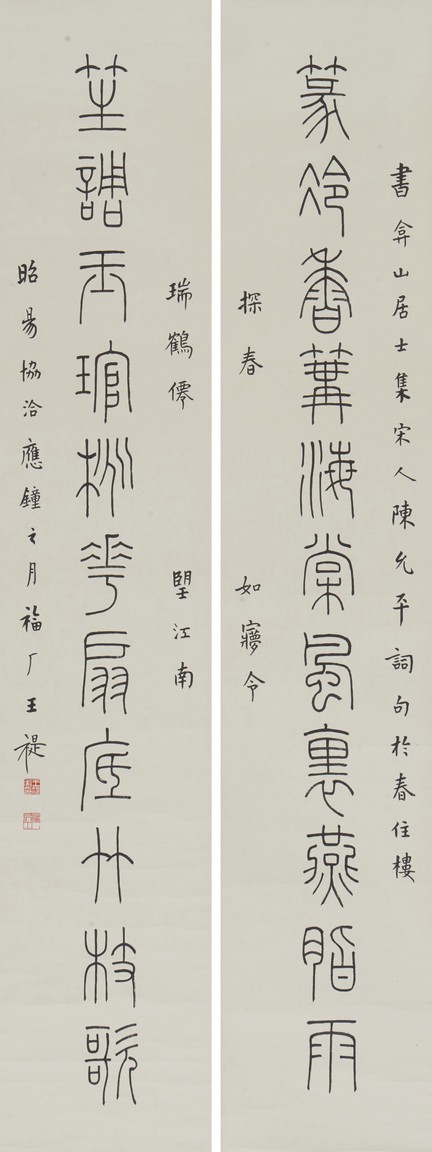 書弇山居士集宋人陳允平詞句於春住樓
篆冷香篝海棠風裏燕脂雨
探春
如㝱令
瑞鶴僊
朢江南
笙調玉琯桃花扇底竹枝歌
昭昜協洽應鐘之月福厂王禔